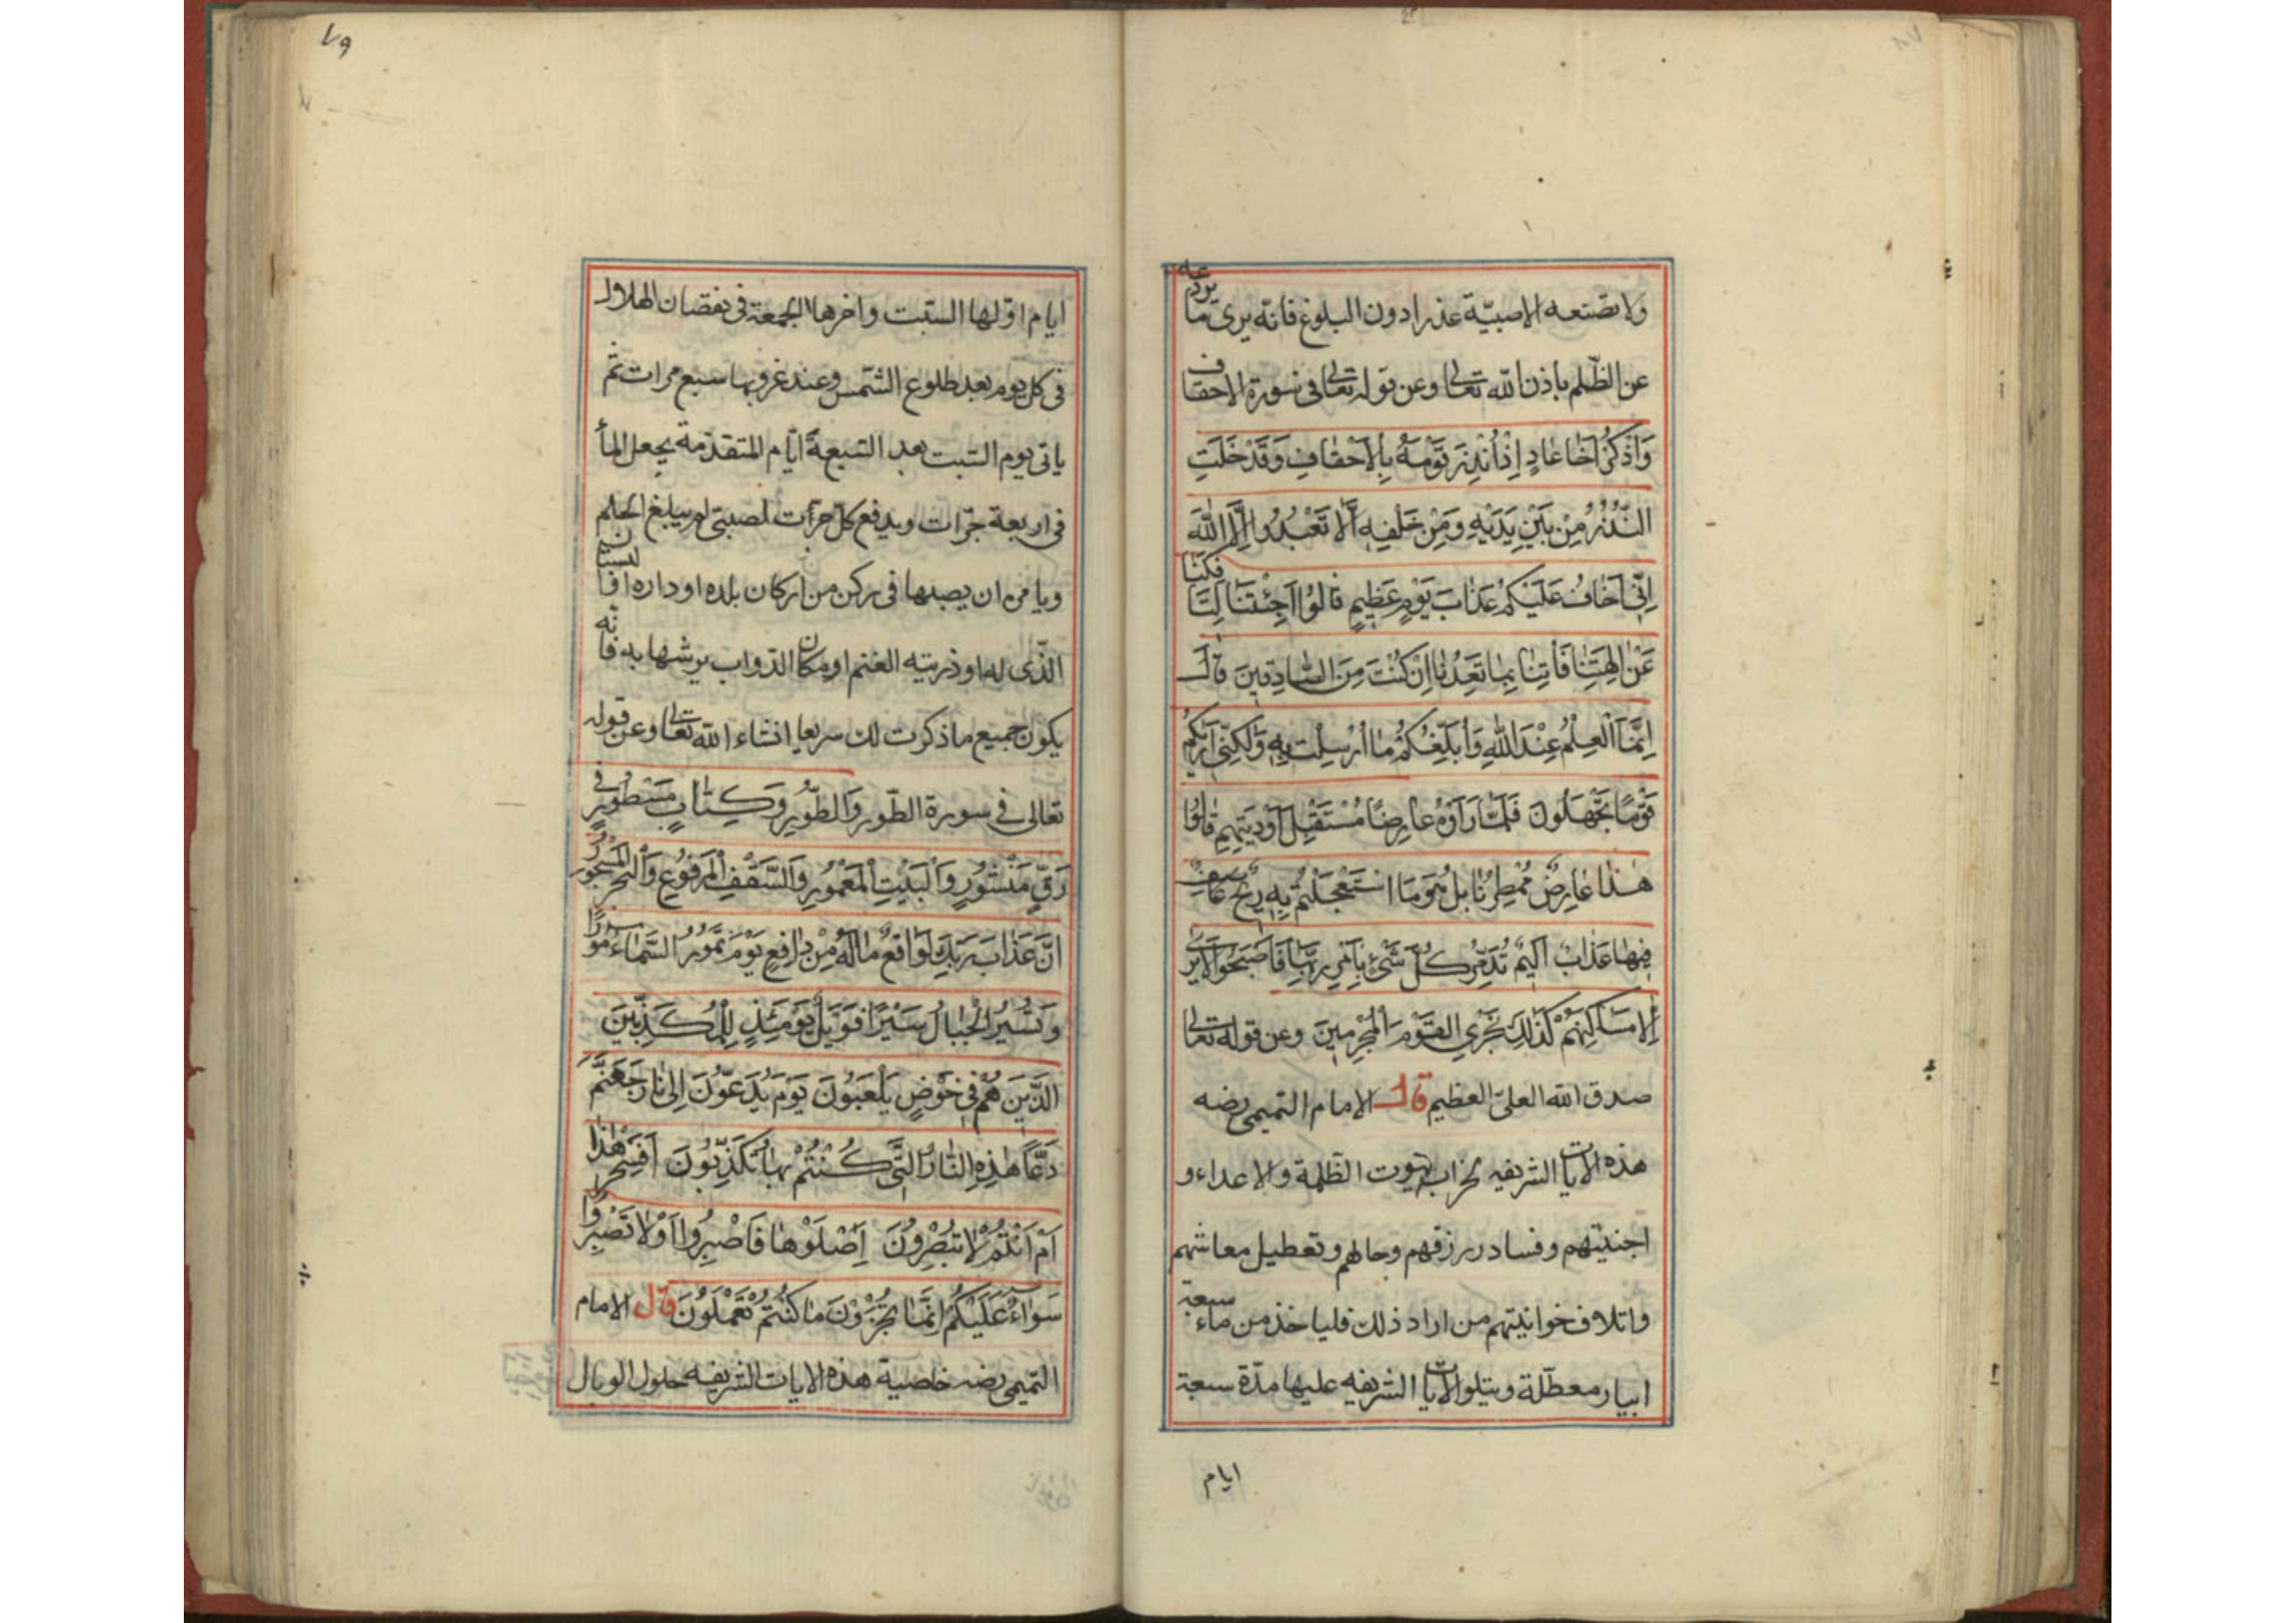 ولا تصنعه الا صبيّة عذرا دون البلوغ فانه يرى ما يردعه
عن الظّلم باذن الله تعالى وعن قوله تعالى فى سورة الاحقاف
وَاذْكُرْ اَخَا عَادٍ اِذْ اَنْذَرَ قَوْمَهُ بِالْاَحْقَافِ وَقَدْ خَلَتِ
النُّذُرُ مِنْ بَيْنِ يَدَيْهِ وَمِنْ خَلْفِهِ اَلَّا تَعْبُدُوا اِلَّا اللّٰهَ
اِنِّي اَخَافُ عَلَيْكُمْ عَذَابَ يَوْمٍ عَظِيمٍ قَالُوا اَجِئْتَنَا لِتَاْفِكَنَا
عَنْ اٰلِهَتِنَا فَأْتِنَا بِمَا تَعِدُنَا اِنْ كُنْتَ مِنَ الصَّادِقِينَ قَالَ
اِنَّمَا الْعِلْمُ عِنْدَ اللّٰهِ وَاُبَلِّغُكُمْ مَا اُرْسِلْتُ بِهِ وَلٰكِنِّي اَرٰيكُمْ
قَوْمًا تَجْهَلُونَ فَلَمَّا رَاَوْهُ عَارِضًا مُسْتَقْبِلَ اَوْدِيَتِهِمْ قَالُوا
هٰذَا عَارِضٌ مُمْطِرُنَا بَلْ هُوَ مَا اسْتَعْجَلْتُمْ بِهِ رِيحٌ عَاصِفٌ
فِيهَا عَذَابٌ اَلِيمٌ تُدَمِّرُ كُلَّ شَيْءٍ بِاَمْرِ رَبِّهَا فَاَصْبَحُوا لَا يُرٰى
اِلَّا مَسَاكِنُهُمْ كَذٰلِكَ نَجْزِي الْقَوْمَ الْمُجْرِمِينَ وعن قوله تعالى
صدق الله العلىّ العظيم قال الامام التميمى رضه
هذه الايات الشريفه لخراب بيوت الظلمة والاعداء و
اجنيتهم وفساد رزقهم وحالهم وتعطيل معاشهم
واتلاف خوانيتهم من اراد ذلك فلياخذ من ماء سبعة
ابيار معطّلة ويتلو الايات الشريفه عليها مدّة سبعة
ايام
٧٩
ايام اوّلها السّبت واخرها الجمعة فى نقصان الهلال
فى كل يوم بعد طلوع الشّمس وعند غروبها سبع مرات ثم
ياتى يوم السّبت بعد السّبعة ايّام المتقدّمة يجعل الماٴ
فى اربعة جرّات ويدفع كلّ جرّات لصبىّ لم يبلغ الحلم
ويامره ان يصبها فى ركن من اركان بلده او داره او البستان
الذّى له او ذريته الغنم او مكان الدّواب يرشها به فانه
يكون جميع ما ذكرت لك سريعا انشاء الله تعالى وعن قوله
تعالى فى سورة الطّور وَالطُّورِ وَكِتَابٍ مَسْطُورٍ فِي
رَقٍّ مَنْشُورٍ وَالْبَيْتِ الْمَعْمُورِ وَالسَّقْفِ الْمَرْفُوعِ وَالْبَحْرِ الْمَسْجُورِ
اِنَّ عَذَابَ رَبِّكَ لَوَاقِعٌ مَا لَهُ مِنْ دَافِعٍ يَوْمَ تَمُورُ السَّمَاءُ مَوْرًا
وَتَسِيرُ الْجِبَالُ سَيْرًا فَوَيْلٌ يَوْمَئِذٍ لِلْمُكَذِّبِينَ
الَّذِينَ هُمْ فِي خَوْضٍ يَلْعَبُونَ يَوْمَ يُدَعُّونَ اِلٰى نَارِ جَهَنَّمَ
دَعًّا هٰذِهِ النَّارُ الَّتِي كُنْتُمْ بِهَا تُكَذِّبُونَ اَفَسِحْرٌ هٰذَا
اَمْ اَنْتُمْ لَا تُبْصِرُونَ اِصْلَوْهَا فَاصْبِرُوا اَوْ لَا تَصْبِرُوا
سَوَاءٌ عَلَيْكُمْ اِنَّمَا تُجْزَوْنَ مَا كُنْتُمْ تَعْمَلُونَ قال الامام
التّميمى رضه خاصية هذه الايات الشريفه حلول الوبال